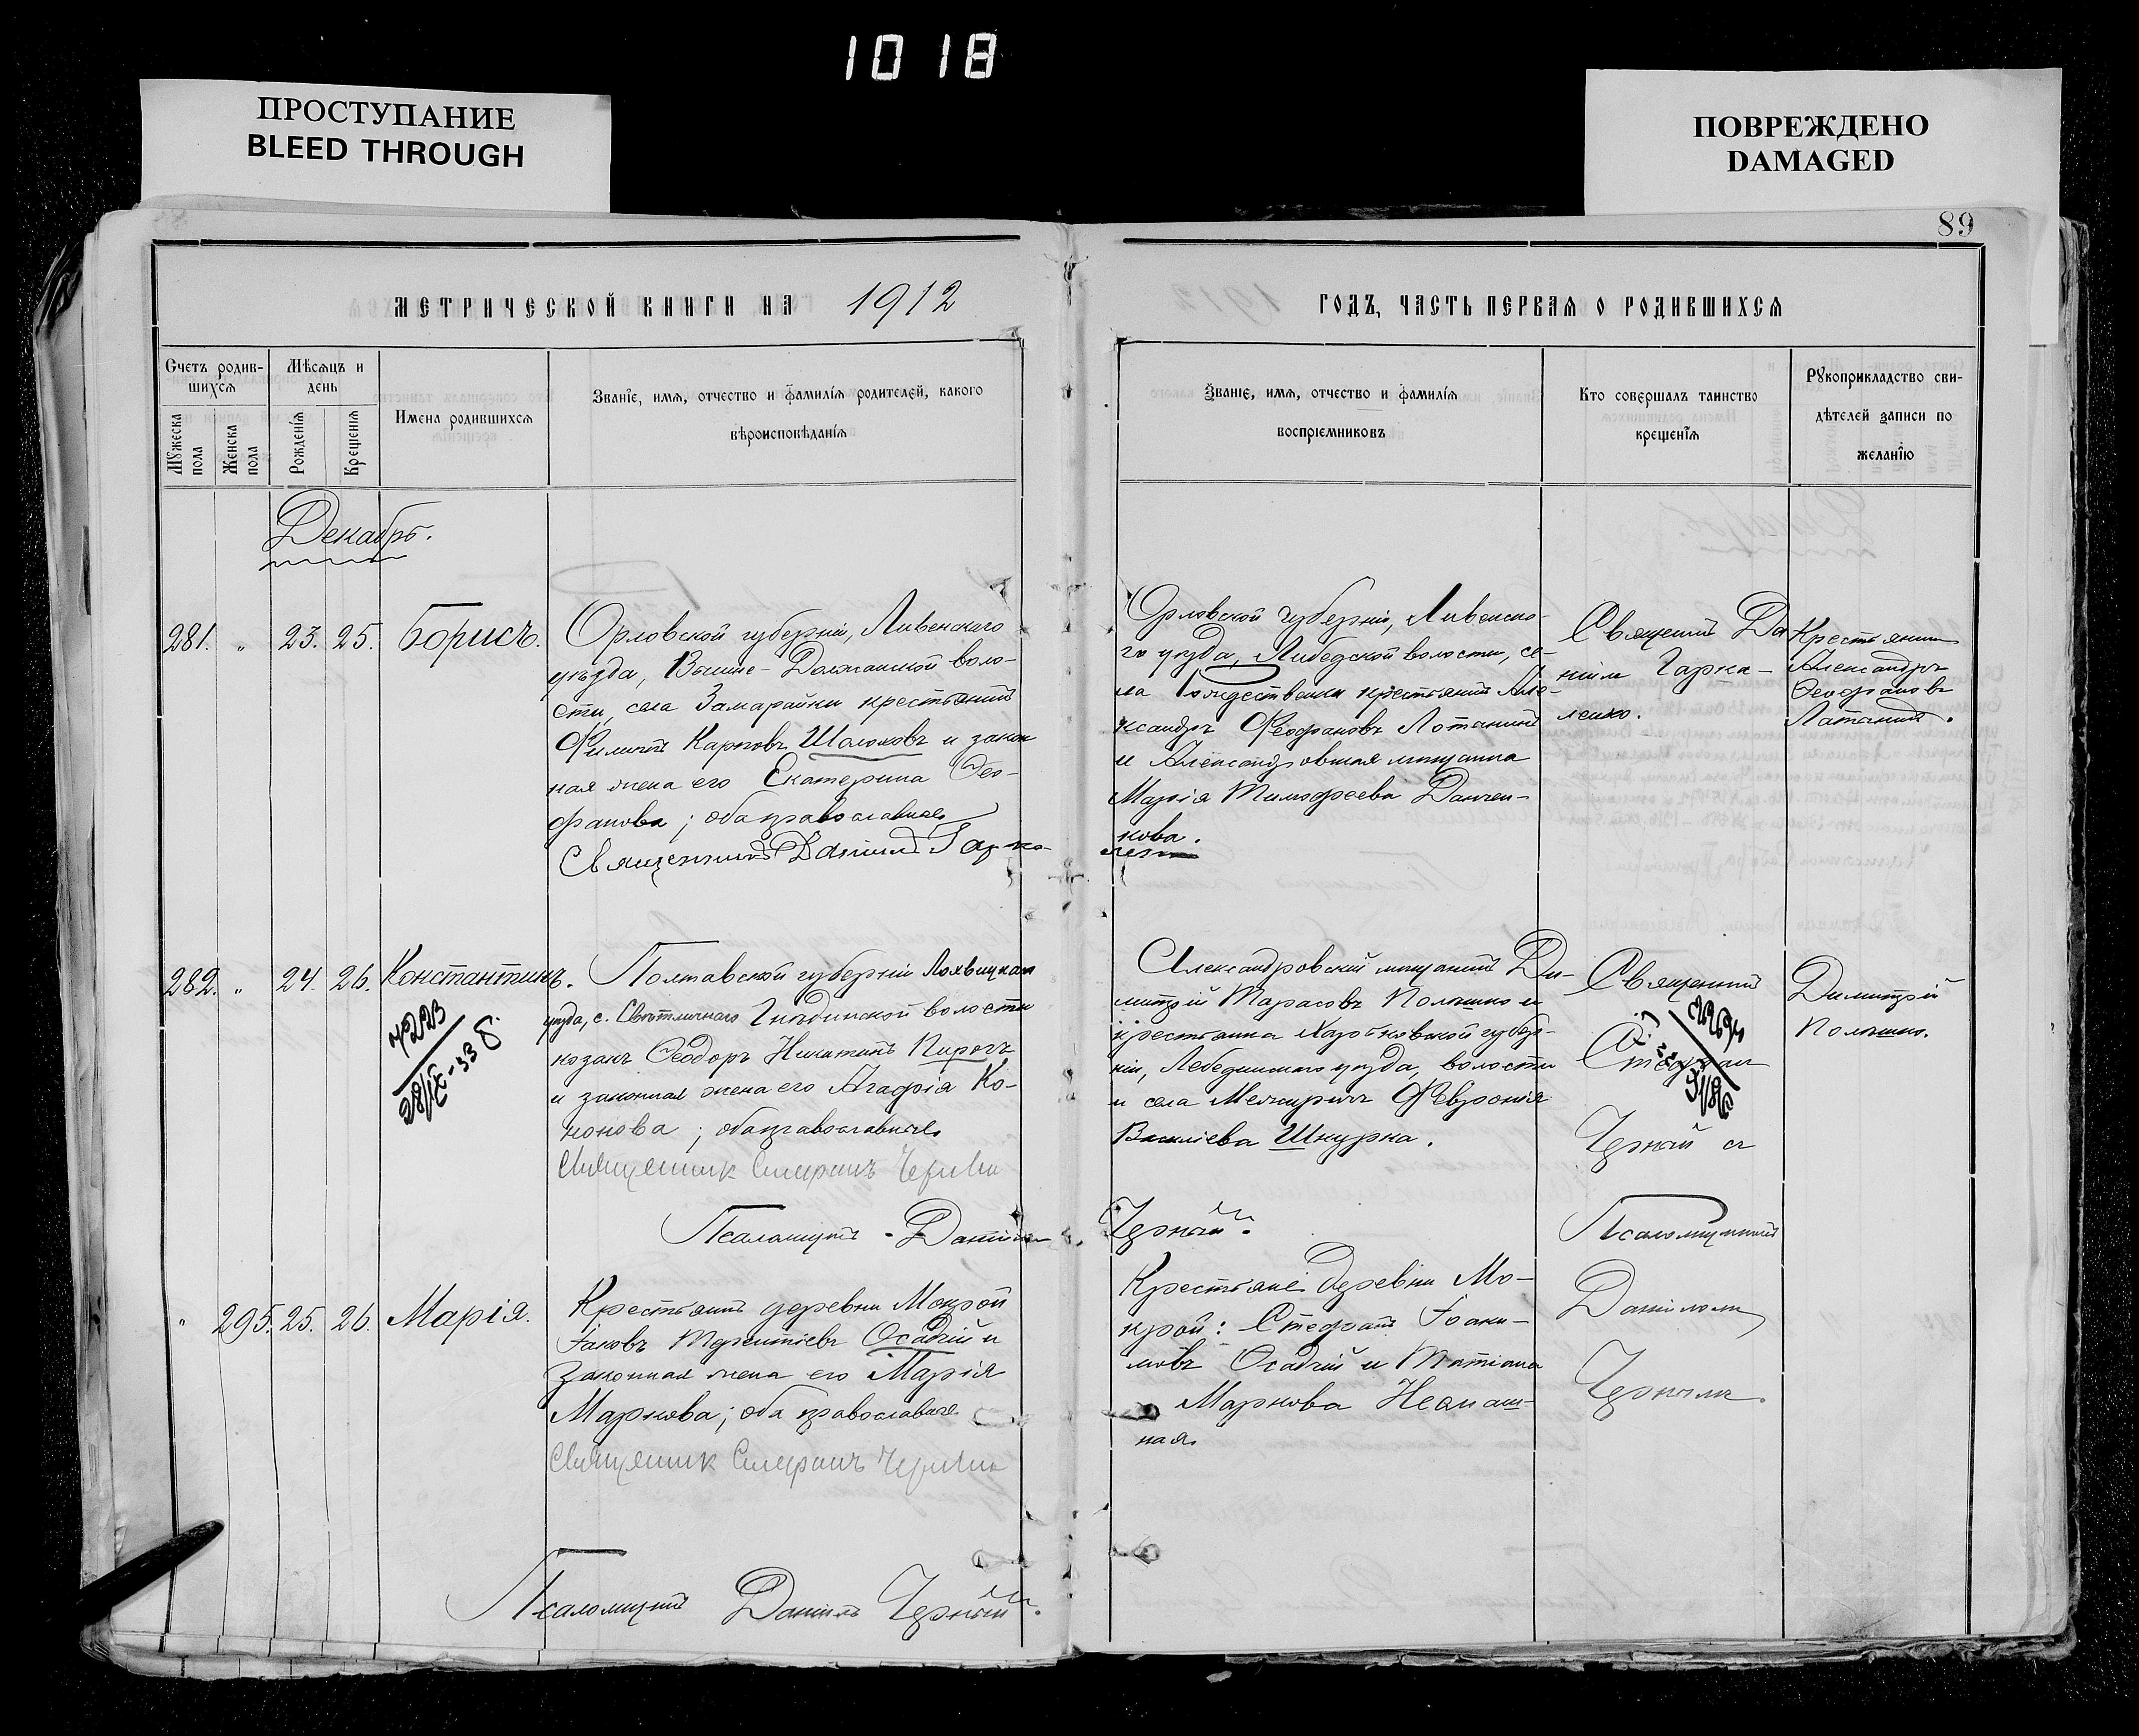 1018
ПРОСТУПАНИЕ
BLEED THROUGH
ПОВРЕЖДЕНО
DAMAGED
89
МЕТРИЧЕСКОЙ КНИГИ НА 1912
ГОДЪ, ЧАСТЬ ПЕРВАЯ О РОДИВШИХСЯ
Счетъ родив-
шихся
Мужеска
пола
Женска
пола
Мѣсяцъ и
день
Рожденія
Крещенія
Имена родившихся
Званіе, имя, отчество и фамилія родителей, какого
вѣроисповѣданія
Званіе, имя, отчество и фамилія
воспріемниковъ
Кто совершалъ таинство
крещенія
Рукоприкладство сви-
дѣтелей записи по
желанію
Декабрь.
281. " 23. 25. Борисъ.
Орловской губерніи, Ливенскаго
уѣзда, Вышне-Должанской воло-
сти, села Замарайки крестьянинъ
Карповъ Шолоховъ и закон
ная жена его Екатерина Ѳео-
фанова; оба православные
Священникъ Даніилъ Гарка-
Орловской губерніи, Ливенска-
го уѣзда, волости, се-
ла Рождественки крестьянинъ Але-
ксандръ Ѳеофановъ Лотанинъ
и Александровская мѣщанка
Марія Тимофеева Данчен-
кова.
Священникъ Да
ніилъ Гарка-
ленко.
Крестьянинъ
Александръ
Ѳеофановъ
Латанинъ.
282. " 24. 26. Константинъ.
7223
28/IX-33 г.
Полтавской губерніи Лохвицкаго
уѣзда, с. Свѣтличнаго Гнѣдинской волости
козакъ Ѳеодоръ Никитинъ Пирогъ
и законная жена его Агафія Ко-
нонова; оба православные
Священник
Псаломщикъ - Даніилъ
Черный.
Александровскій мѣщанинъ Ди-
митрій Тарасовъ и
крестьянка Харьковской губер-
ніи, Лебединскаго уѣзда, волости
и села Межиричъ Февронія
Василіева Шкурка.
Священникъ
Стефанъ
Черный съ
Псаломщикомъ
Даніиломъ
Чернымъ.
Димитрій
" 295. 25. 26. Марія.
Крестьянинъ деревни Мокрой
Іаковъ Терентіевъ Осадчій и
законная жена его Марія
Маркова; оба православные
Священник
Крестьяне деревни Мо-
крой: Стефанъ Іоаки-
мовъ Осадчій и Татіана
Маркова
ная.
Псаломщикъ Даніилъ Черный.